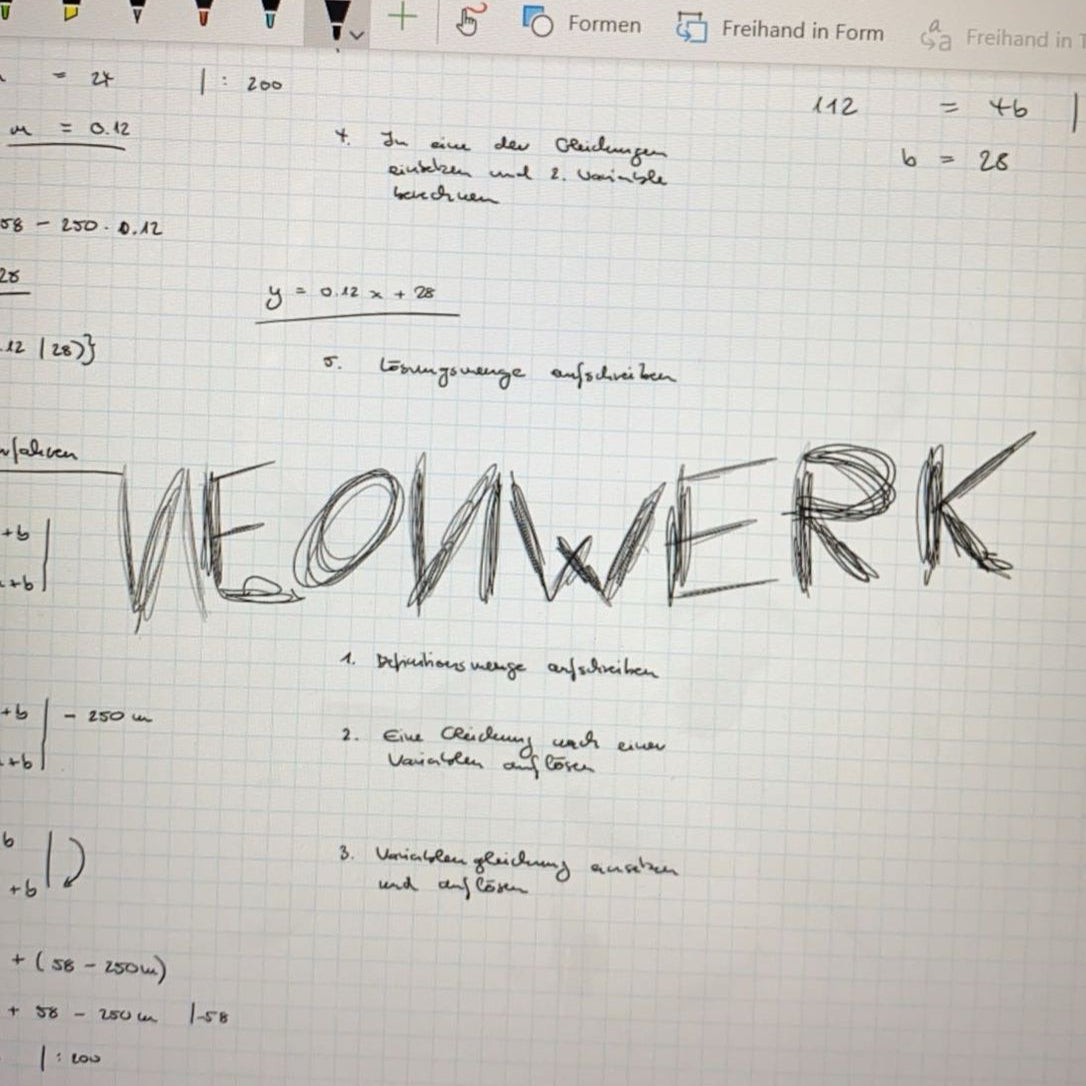 Formen
Freihand in Form
Freihand in T
= 24 | : 200
m = 0.12
58 - 250 · 0.12
28
.12 | 28)}
4. In eine der Gleichungen
einsetzen und 2. Variable
berechnen
112 = 4b |
b = 28
y = 0.12 x + 28
5. Lösungsmenge aufschreiben
rfahren
NEONWERK
+b
+b
1. Definitionsmenge aufschreiben
+b | - 250 m
+b
2. Eine Gleichung nach einer
Variablen auflösen
b
+b
3. Variablengleichung einsetzen
und auflösen
+ (58 - 250m)
+ 58 - 250m |-58
| : 200